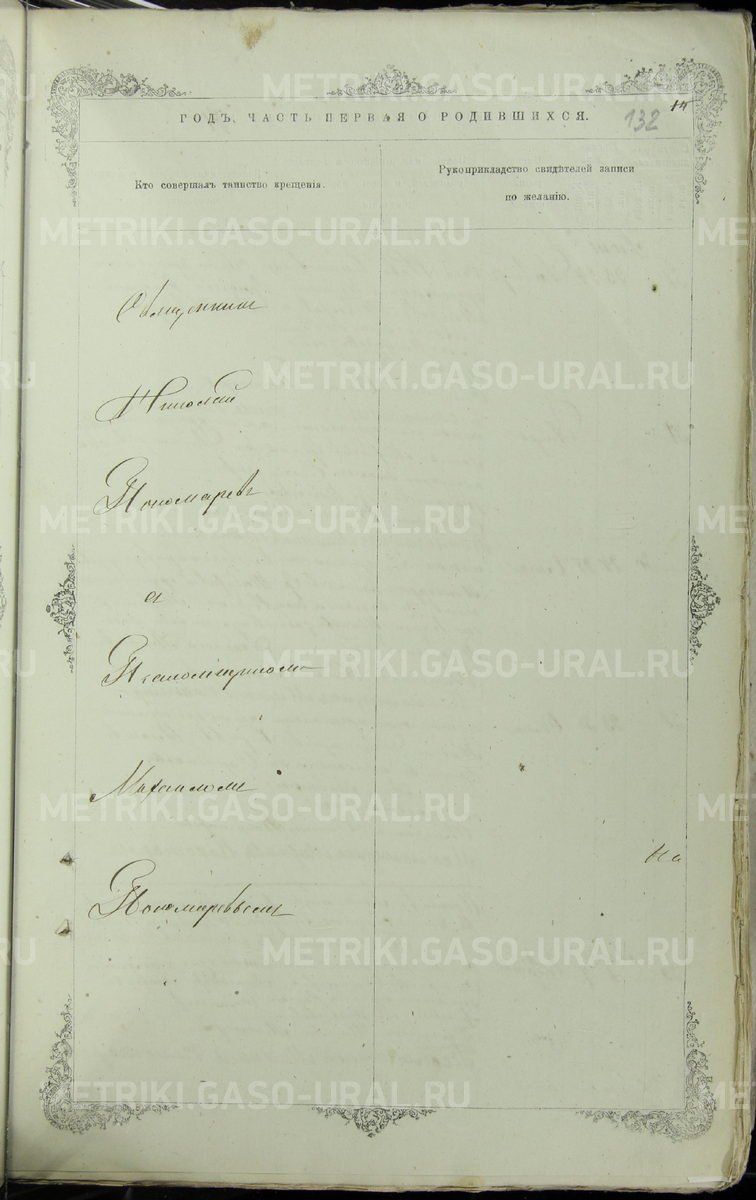 ГОДЪ, ЧАСТЬ ПЕРВАЯ О РОДИВШИХСЯ.
132
14
Кто совершалъ таинство крещенія.
Рукоприкладство свидѣтелей записи
по желанію.
Священник
Николай
Пономаревъ
с
Псаломщикомъ
Михаиломъ
Пономаревымъ
На
METRIKI.GASO-URAL.RU